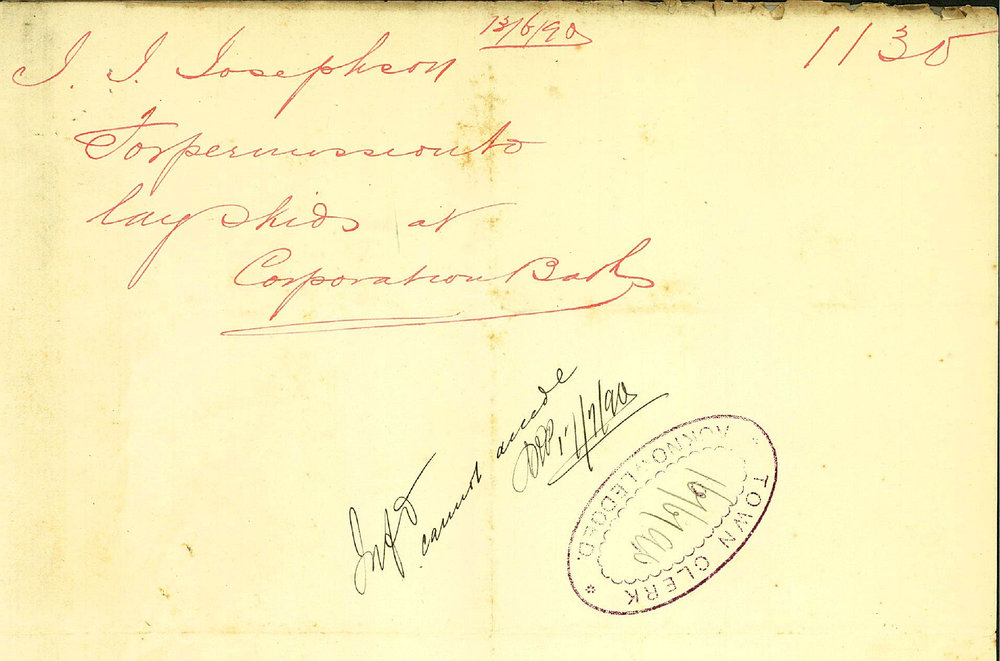 13/6/90
1130
J. J. Josephson
For permission to
lay skids at
Corporation Baths
Inf d
cannot accede
17/7/90
TOWN CLERK
16/6/90
ACKNOWLEDGED.